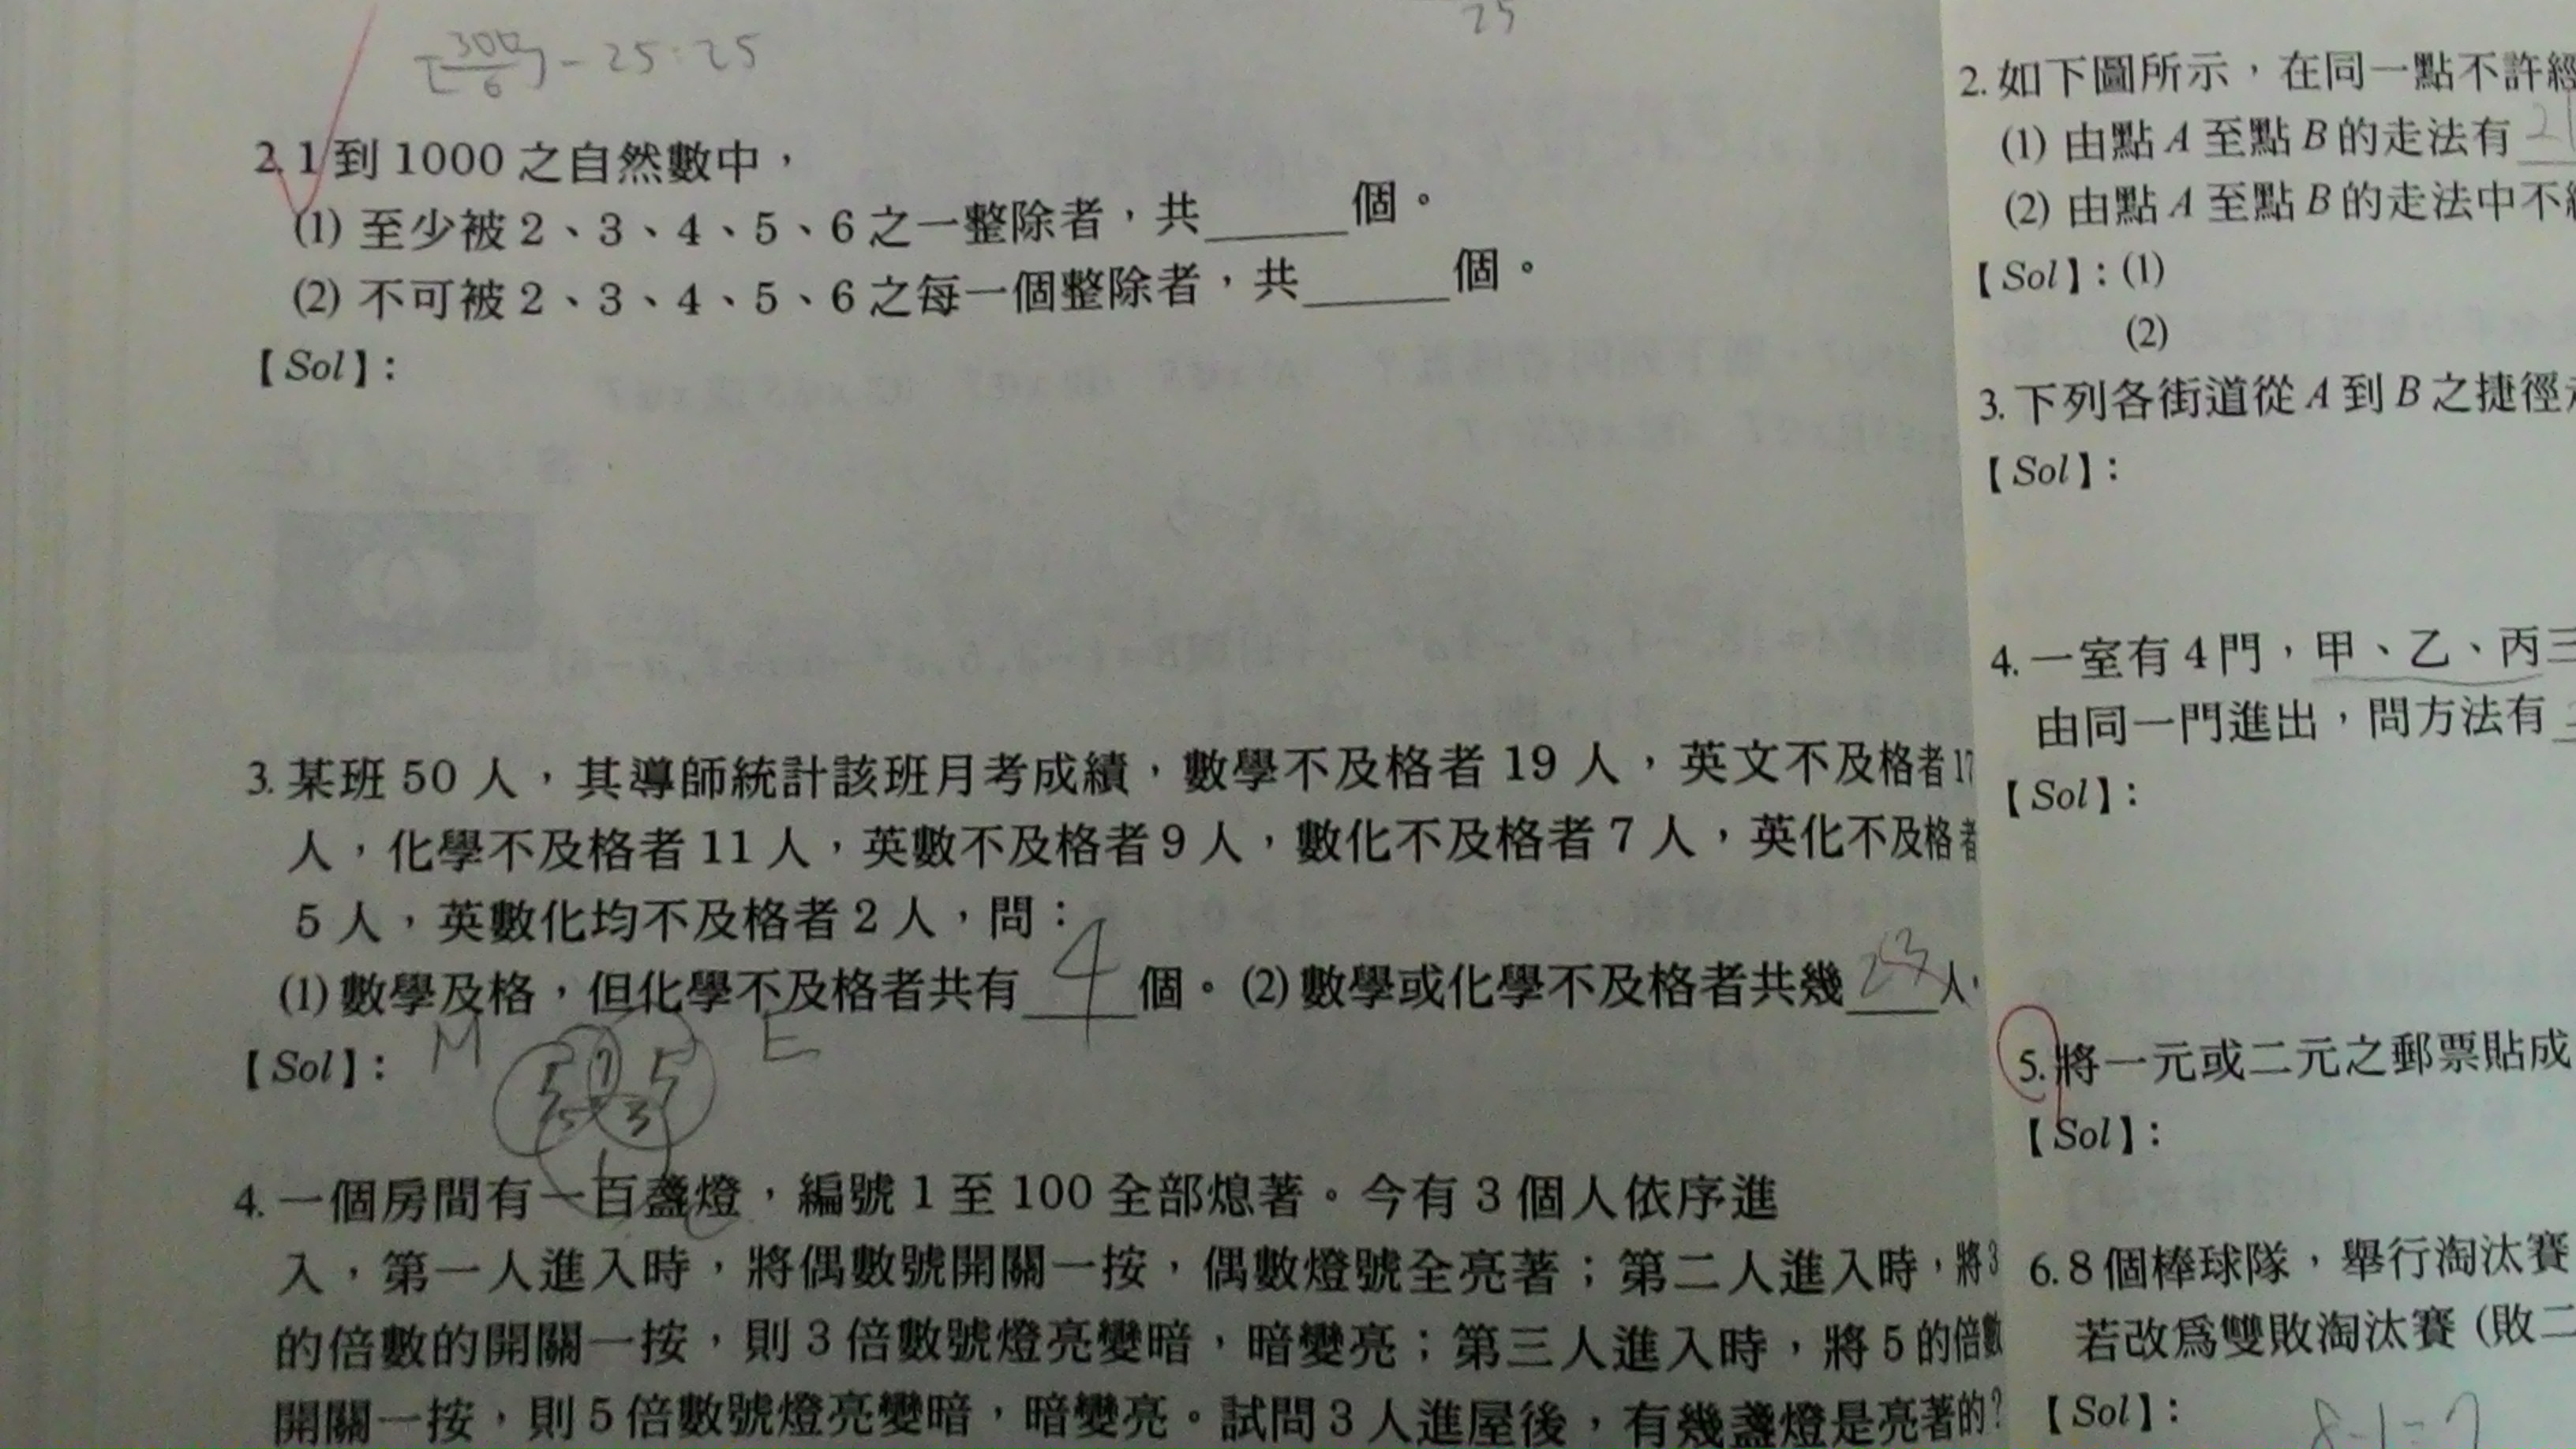 25
[300/6] - 25 : 25
2. 1到1000之自然數中，
(1) 至少被2、3、4、5、6之一整除者，共_____個。
(2) 不可被2、3、4、5、6之每一個整除者，共_____個。
【Sol】：
3. 某班50人，其導師統計該班月考成績，數學不及格者19人，英文不及格者17
人，化學不及格者11人，英數不及格者9人，數化不及格者7人，英化不及格者
5人，英數化均不及格者2人，問：
(1) 數學及格，但化學不及格者共有 4 個。(2) 數學或化學不及格者共幾 23 人，
【Sol】： M E
4. 一個房間有一百盞燈，編號1至100全部熄著。今有3個人依序進
入，第一人進入時，將偶數號開關一按，偶數燈號全亮著；第二人進入時，將3
的倍數的開關一按，則3倍數號燈亮變暗，暗變亮；第三人進入時，將5的倍數
開關一按，則5倍數號燈亮變暗，暗變亮。試問3人進屋後，有幾盞燈是亮著的？
2. 如下圖所示，在同一點不許經
(1) 由點A至點B的走法有
(2) 由點A至點B的走法中不
【Sol】：(1)
(2)
3. 下列各街道從A到B之捷徑
【Sol】：
4. 一室有4門，甲、乙、丙三
由同一門進出，問方法有
【Sol】：
5. 將一元或二元之郵票貼成
【Sol】：
6. 8個棒球隊，舉行淘汰賽
若改爲雙敗淘汰賽(敗二
【Sol】：
8-1=7